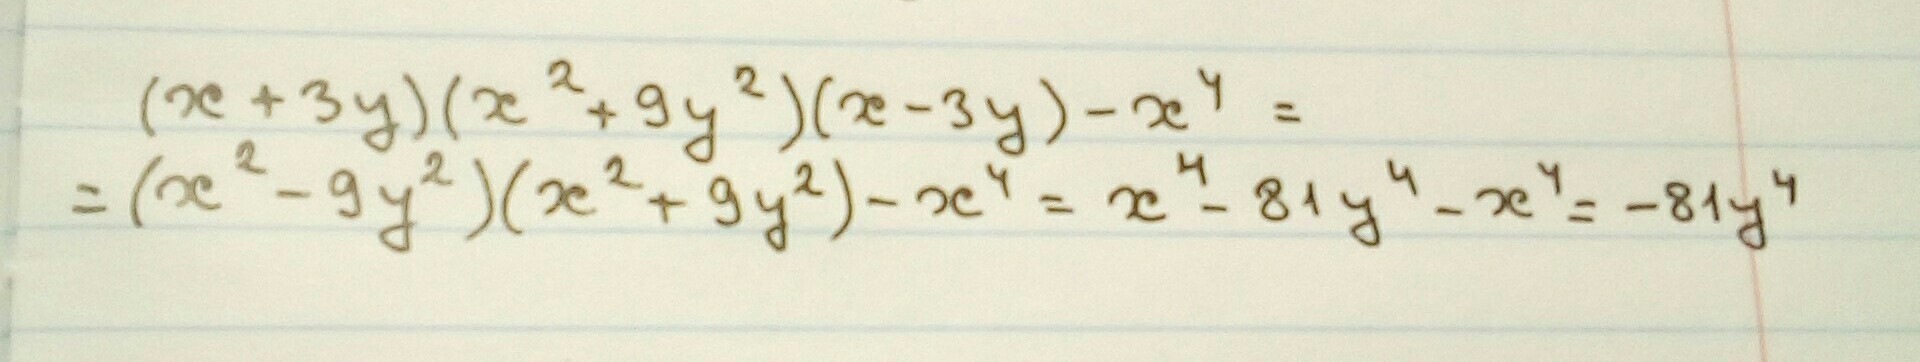 (x + 3y)(x² + 9y²)(x - 3y) - x⁴ =
= (x² - 9y²)(x² + 9y²) - x⁴ = x⁴ - 81y⁴ - x⁴ = -81y⁴